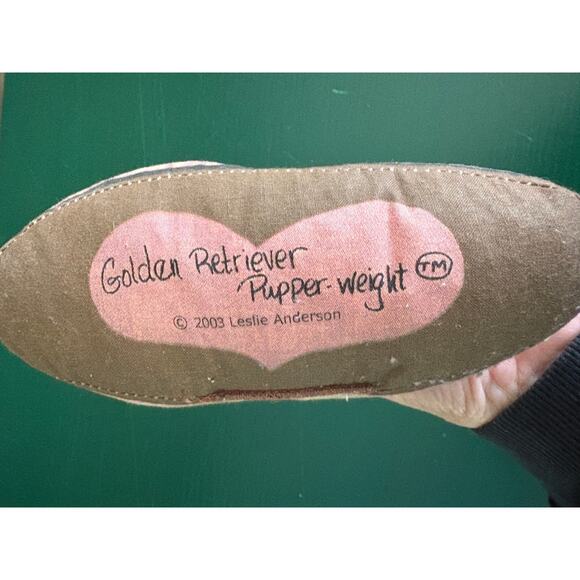 Golden Retriever
Pupper-weight TM
© 2003 Leslie Anderson